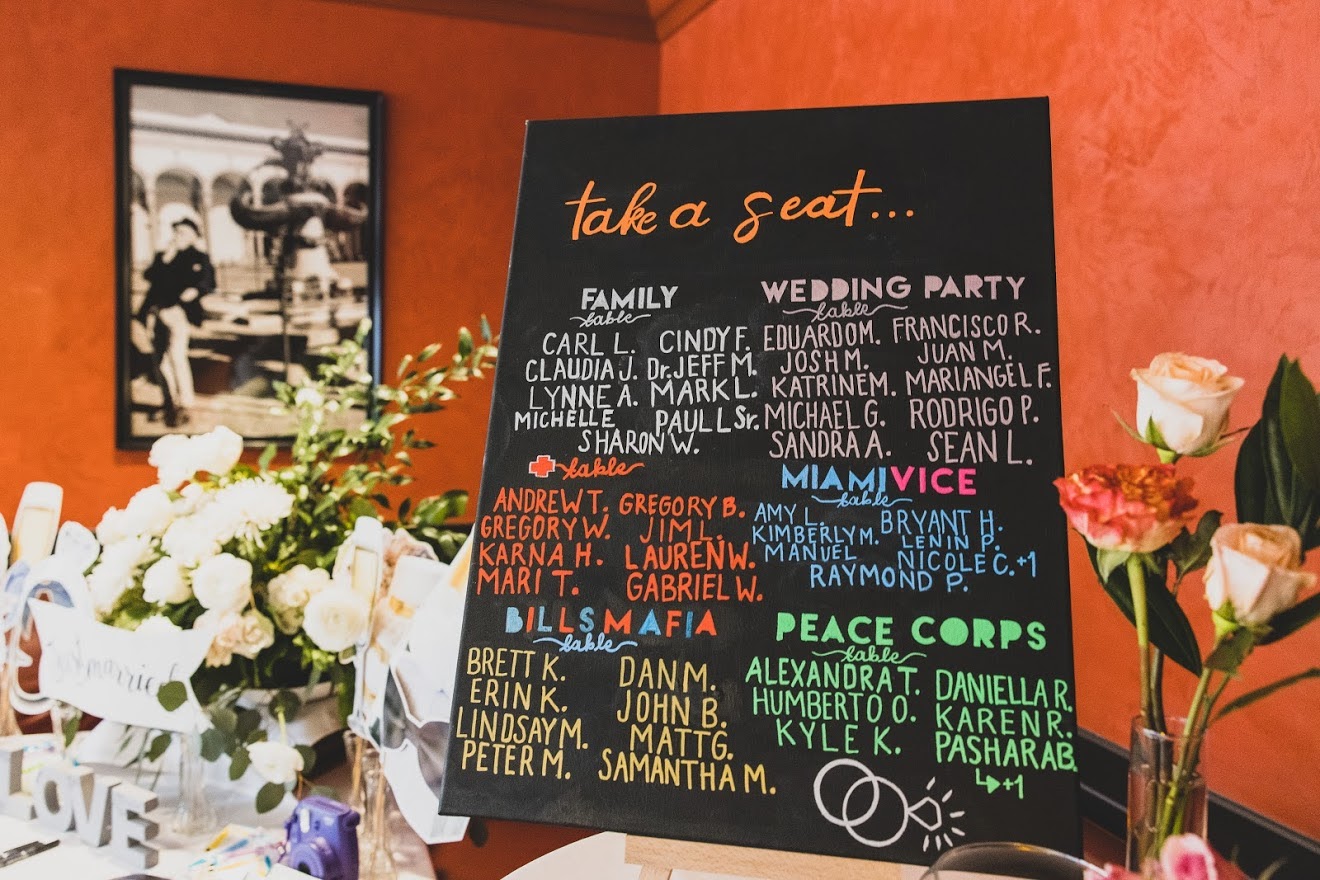 take a seat...
FAMILY
table
CARL L. CINDY F.
CLAUDIA J. Dr. JEFF M.
LYNNE A. MARK L.
MICHELLE PAUL L Sr.
SHARON W.
WEDDING PARTY
table
EDUARDO M. FRANCISCO R.
JOSH M. JUAN M.
KATRINE M. MARIANGEL F.
MICHAEL G. RODRIGO P.
SANDRA A. SEAN L.
table
ANDREW T. GREGORY B.
GREGORY W. JIM L.
KARNA H. LAUREN W.
MARI T. GABRIEL W.
MIAMI VICE
table
AMY L. BRYANT H.
KIMBERLY M. LENIN P.
MANUEL NICOLE C. +1
RAYMOND P.
BILLS MAFIA
table
BRETT K. DAN M.
ERIN K. JOHN B.
LINDSAY M. MATT G.
PETER M. SAMANTHA M.
PEACE CORPS
table
ALEXANDRA T. DANIELLA R.
HUMBERTO O. KAREN R.
KYLE K. PASHARA B.
↳+1
just married
LOVE